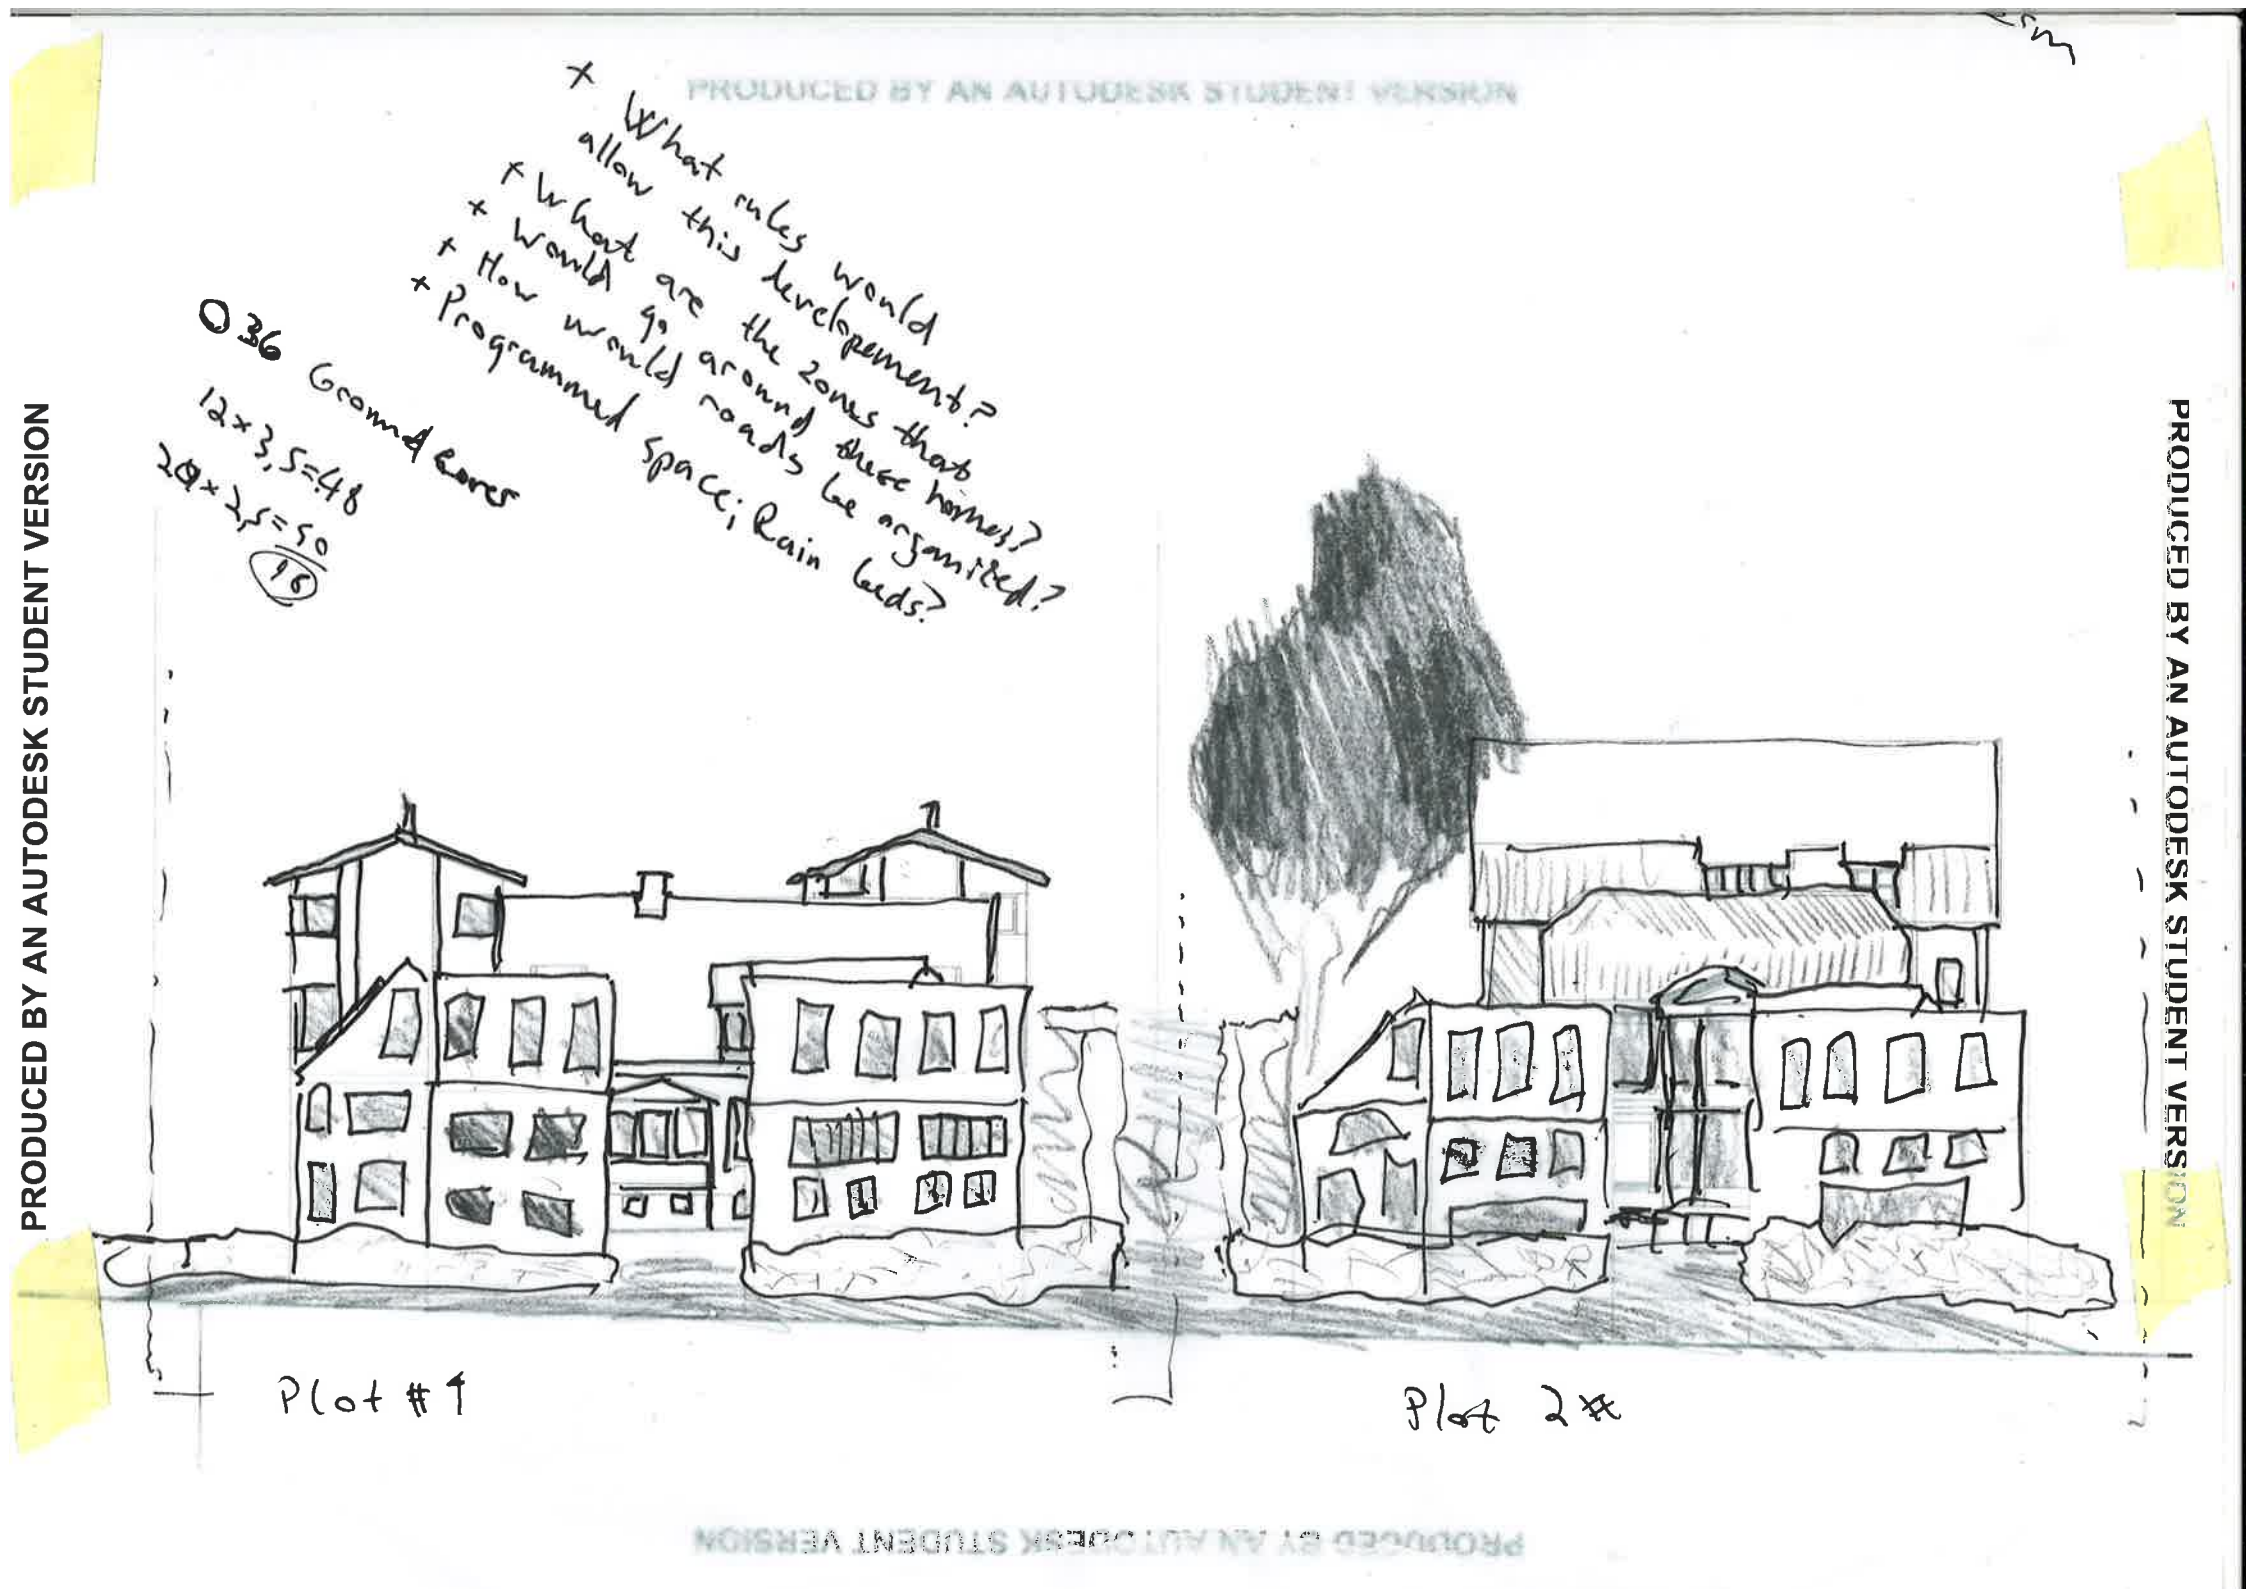 PRODUCED BY AN AUTODESK STUDENT VERSION
x What rules would
allow this developement?
x What are the zones that
x Would go around these homes?
x How would roads be organized?
x Programmed space; Rain beds?
036 Ground
12 x 3,5=48
20 x 2,5=50
98
PRODUCED BY AN AUTODESK STUDENT VERSION
PRODUCED BY AN AUTODESK STUDENT VERSION
Plot #1
Plot 2#
PRODUCED BY AN AUTODESK STUDENT VERSION